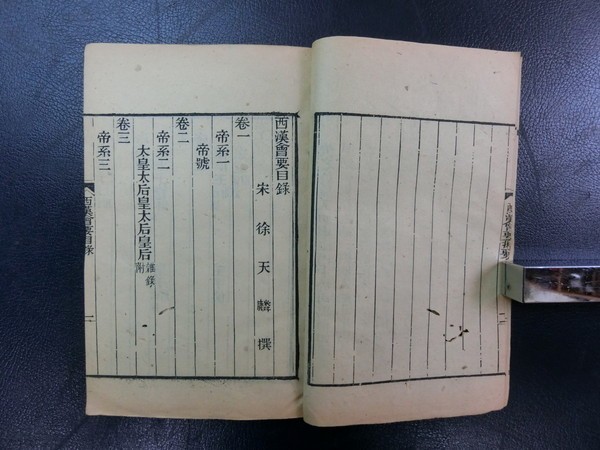 西漢會要目錄
宋徐天麟撰
卷一
帝系一
帝號
卷二
帝系二
太皇太后皇太后皇后 雜錄附
卷三
帝系三
西漢會要目錄